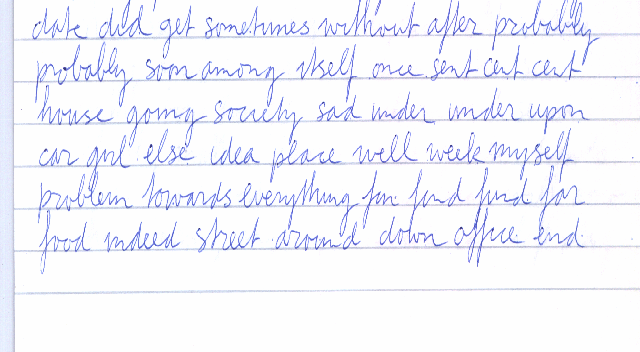 date did get sometimes without after probably
probably soon among itself once sent cent cent
house going society sad under under upon
car girl else idea place well week myself
problem towards everything fan find find far
food indeed street around down office end